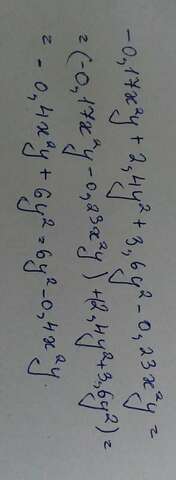 -0,17x²y + 2,4y² + 3,6y² - 0,23x²y =
= (-0,17x²y - 0,23x²y) + (2,4y² + 3,6y²) =
= -0,4x²y + 6y² = 6y² - 0,4x²y.